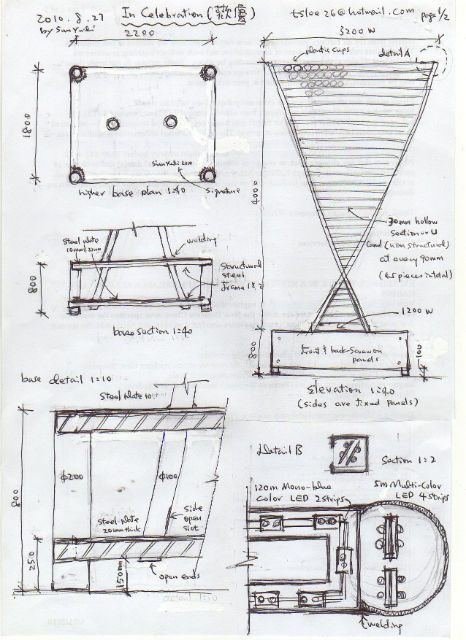 2010. 8. 27
by SunYuki
In Celebration (歡慶)
tsloe26@hotmail.com
page 1/2
2200
1800
SunYuki 2010
signature
higher base plan 1:40
3200 W
plastic cups
detail A
4000
30mm hollow
section or U
(non structural)
at every 90mm
1200 W
800
100
Front & back screw on
panels
elevation 1:40
(sides are fixed panels)
Steel plate
welding
Structural
steel
frame
800
base section 1:40
base detail 1:10
Steel plate
800
250
φ200
φ100
Steel plate
20mm thick
side
open
slot
150mm
open ends
detail B
Section 1:2
120m Mono-blue
color LED 2 strips
5m Multi-color
LED 4 strips
welding